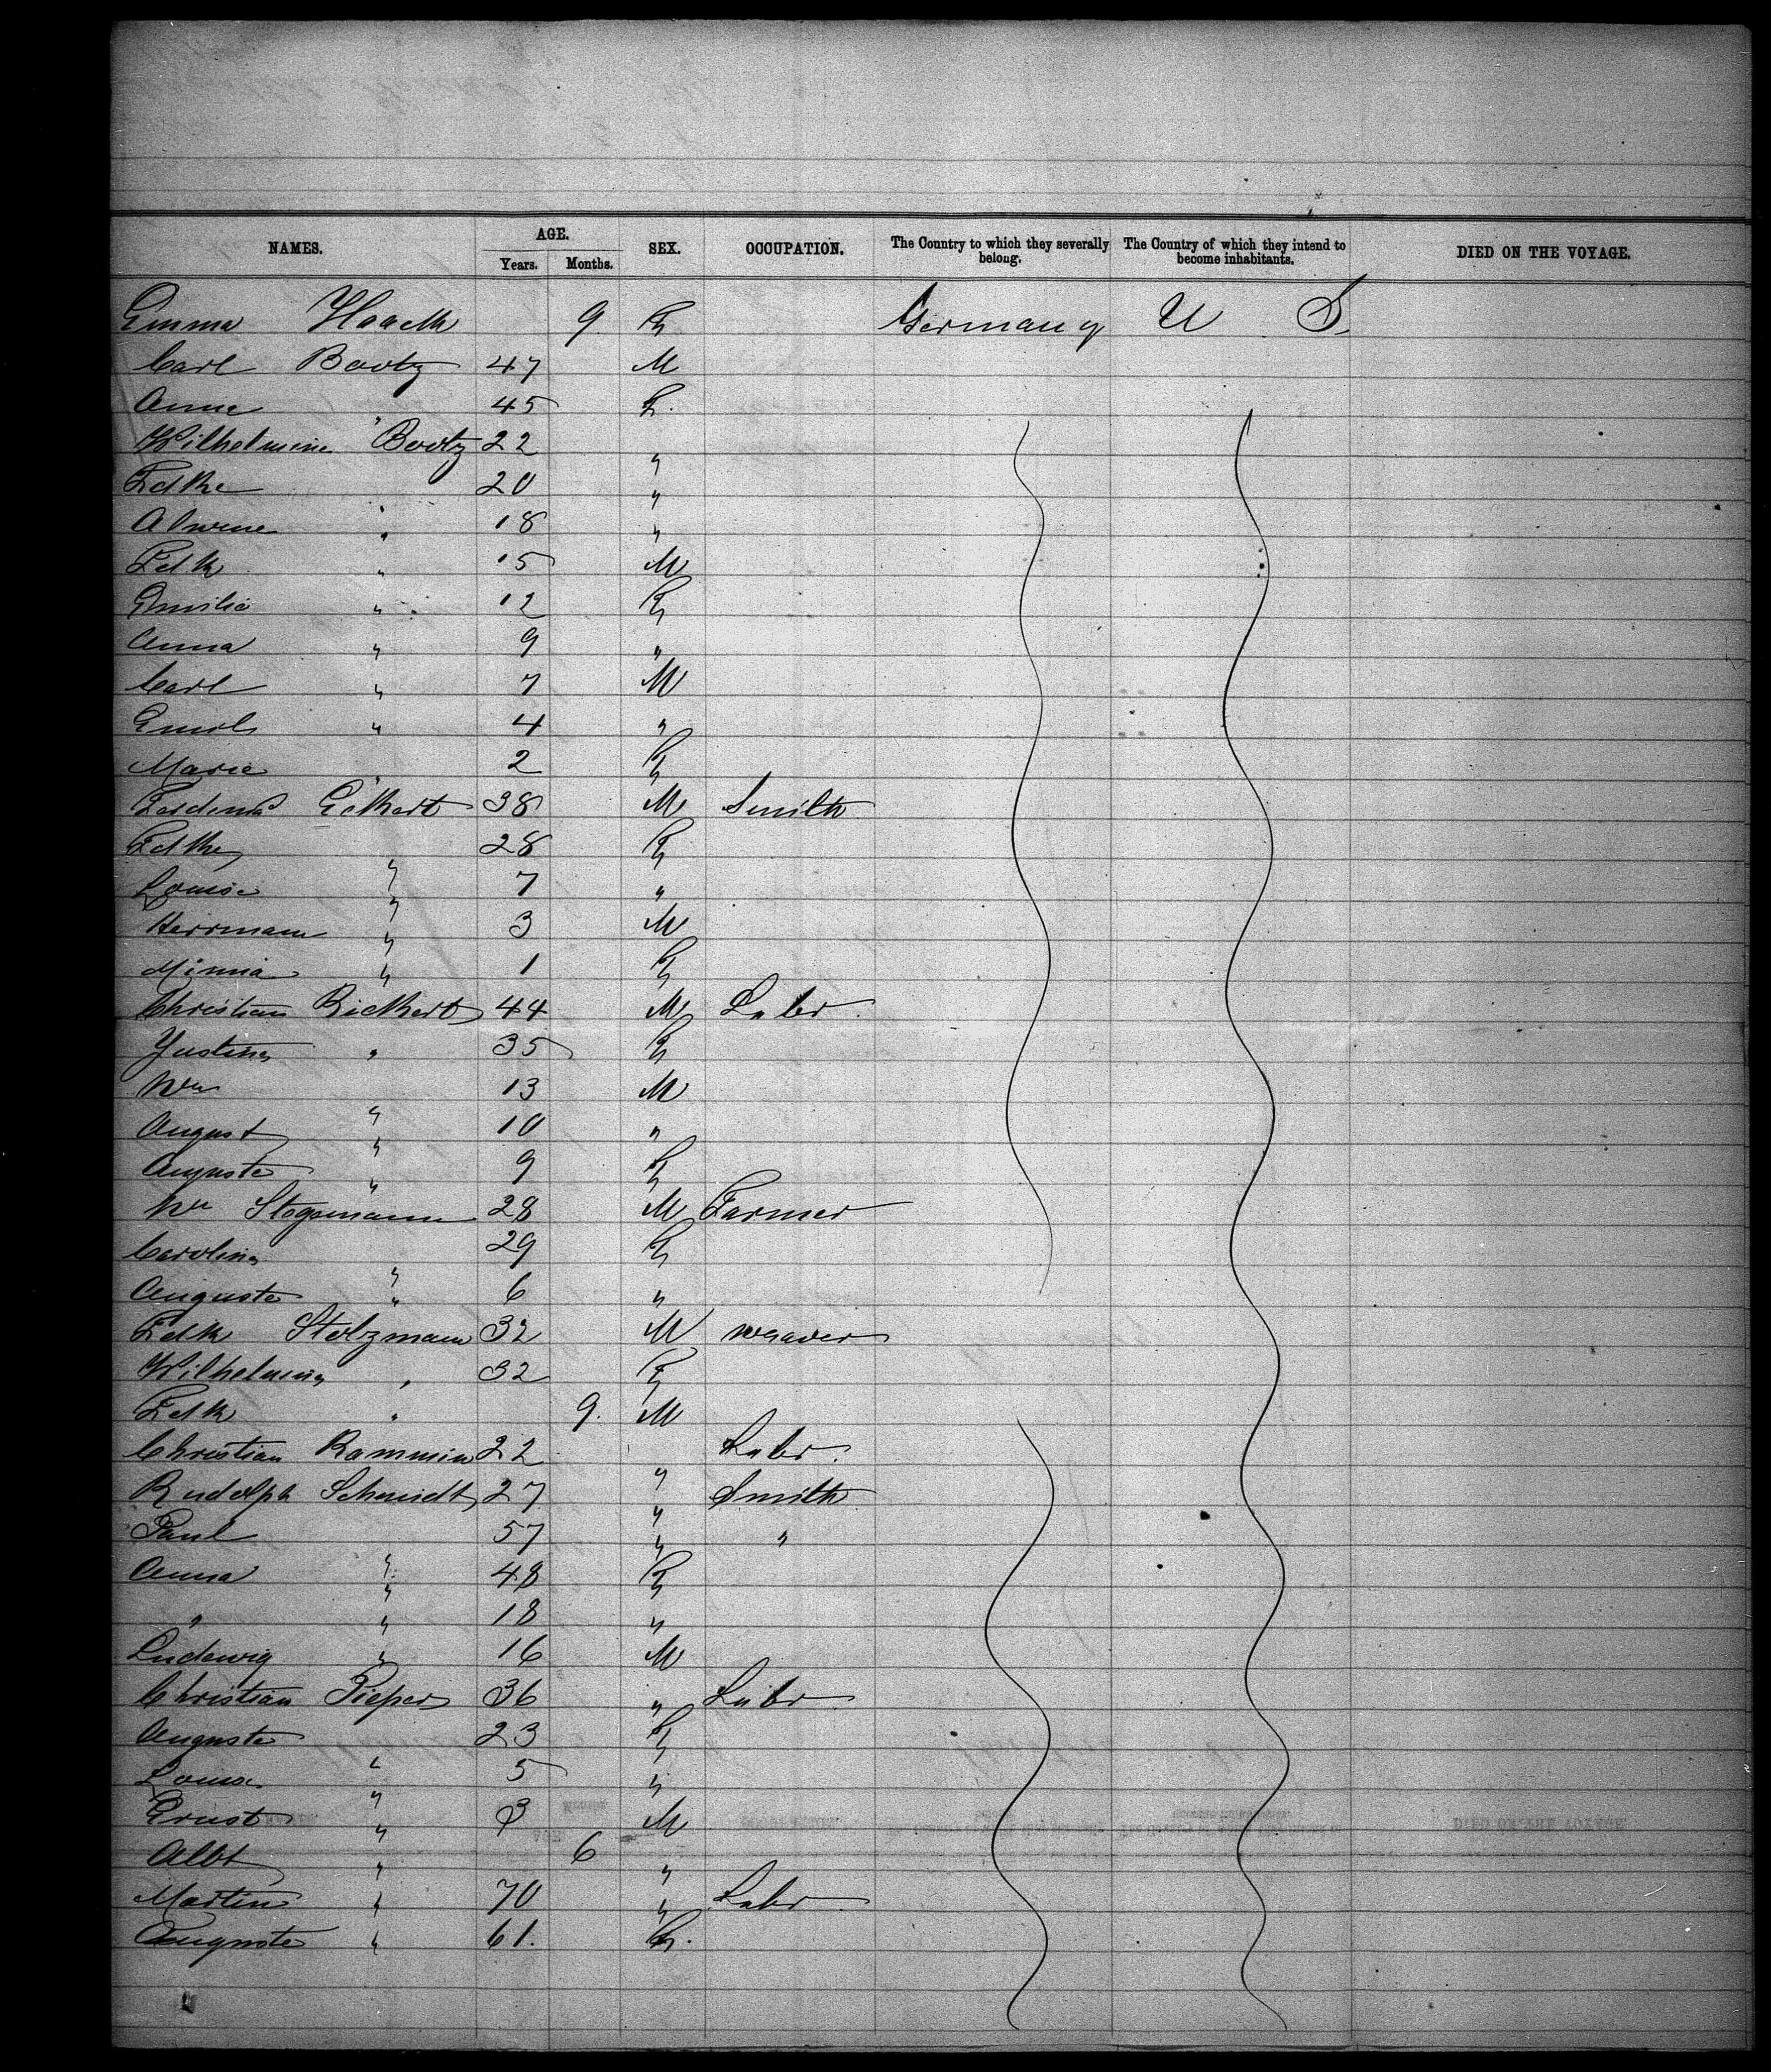 NAMES. AGE. SEX. OCCUPATION. The Country to which they severally belong. The Country of which they intend to become inhabitants. DIED ON THE VOYAGE.
Years. Months.
Emma Haack 9 F Germany U S.
Carl Bootz 47 M
Anna " 45 F.
Wilhelmine Bootz 22 "
Fdke " 20 "
Alwine " 18 "
Fdk " 15 M
Emilie " 12 F
Anna " 9 "
Carl " 7 M
Emil " 4 "
Marie " 2 F
Ferdind Eckert 38 M Smith
Fdke " 28 F
Louise " 7 "
Herrmann " 3 M
Minna " 1 F
Christian Rickert 44 M Labr.
Justine " 35 F
Wm " 13 M
August " 10 "
Auguste " 9 F
Wm Stegemann 28 M Farmer
Caroline " 29 F
Auguste " 6 "
Fdk Stolzmann 32 M weaver
Wilhelmine " 32 F
Fdk " 9. M
Christian Rammin 22 " Labr.
Rudolph Schmidt 27 " Smith
Paul " 57 " "
Anna " 48 F
" " 18 "
Ludewig " 16 M
Christian Pieper 36 " Labr
Auguste " 23 F
Louise " 5 "
Ernst " 3 M
Albt " 6 "
Martin " 70 " Labr
Auguste " 61. F.